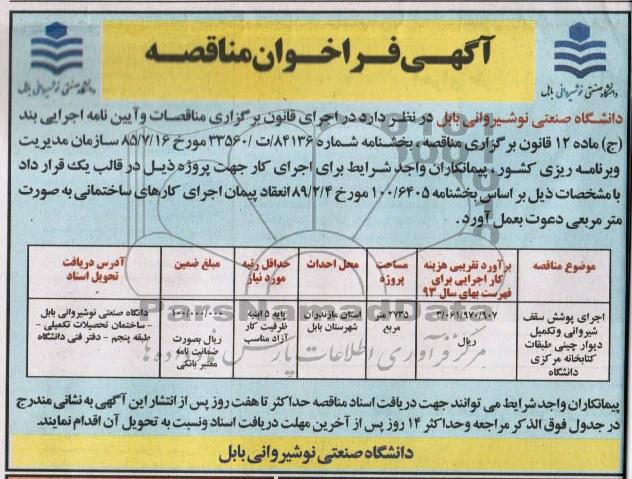 آگهی فراخوان مناقصه
دانشگاه صنعتی نوشیروانی بابل
دانشگاه صنعتی نوشیروانی بابل
دانشگاه صنعتی نوشیروانی بابل در نظر دارد در اجرای قانون برگزاری مناقصات وآیین نامه اجرایی بند
(ج) ماده ۱۲ قانون برگزاری مناقصه ، بخشنامه شماره ۸۴۱۳۶/ت ۳۳۵۶۰/ مورخ ۸۵/۷/۱۶ سازمان مدیریت
وبرنامه ریزی کشور، پیمانکاران واجد شرایط برای اجرای کار جهت پروژه ذیل در قالب یک قرار داد
با مشخصات ذیل بر اساس بخشنامه ۱۰۰/۶۴۰۵ مورخ ۸۹/۲/۴ انعقاد پیمان اجرای کارهای ساختمانی به صورت
متر مربعی دعوت بعمل آورد.
موضوع مناقصه
برآورد تقریبی هزینه
کار اجرایی برای
فهرست بهای سال ۹۳
مساحت
پروژه
محل احداث
حداقل رتبه
مورد نیاز
مبلغ ضمین
آدرس دریافت
تحویل اسناد
اجرای پوشش سقف
شیروانی وتکمیل
دیوار چینی طبقات
کتابخانه مرکزی
دانشگاه
۳/۰۶۱/۹۷۰/۹۰۷
ریال
۲۷۳۵ متر
مربع
استان مازندران
شهرستان بابل
پایه ۵ ابنیه
ظرفیت کار
آزاد مناسب
۱۰۰/۰۰۰/۰۰۰
ریال بصورت
ضمانت نامه
معتبر بانکی
دانگاه صنعتی نوشیروانی بابل
– ساختمان تحصیلات تکمیلی –
طبقه پنجم – دفتر فنی دانشگاه
پیمانکاران واجد شرایط می توانند جهت دریافت اسناد مناقصه حداکثر تا هفت روز پس از انتشار این آگهی به نشانی مندرج
در جدول فوق الذکر مراجعه وحداکثر ۱۴ روز پس از آخرین مهلت دریافت اسناد ونسبت به تحویل آن اقدام نمایند.
دانشگاه صنعتی نوشیروانی بابل
ParsNamadData
مرکز فرآوری اطلاعات پارس نماد داده ها